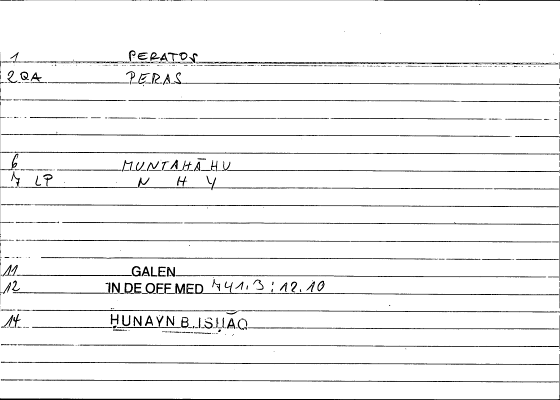 1 PERATOS
2 QA PERAS
6 MUNTAHĀHU
7 LP N H Y
11 GALEN
12 IN DE OFF MED 741.3 : 12.10
14 ḤUNAYN B. ISḤĀQ